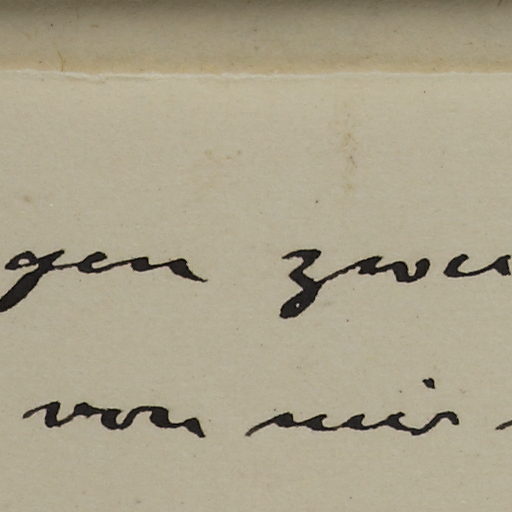 gen zwei
von mir